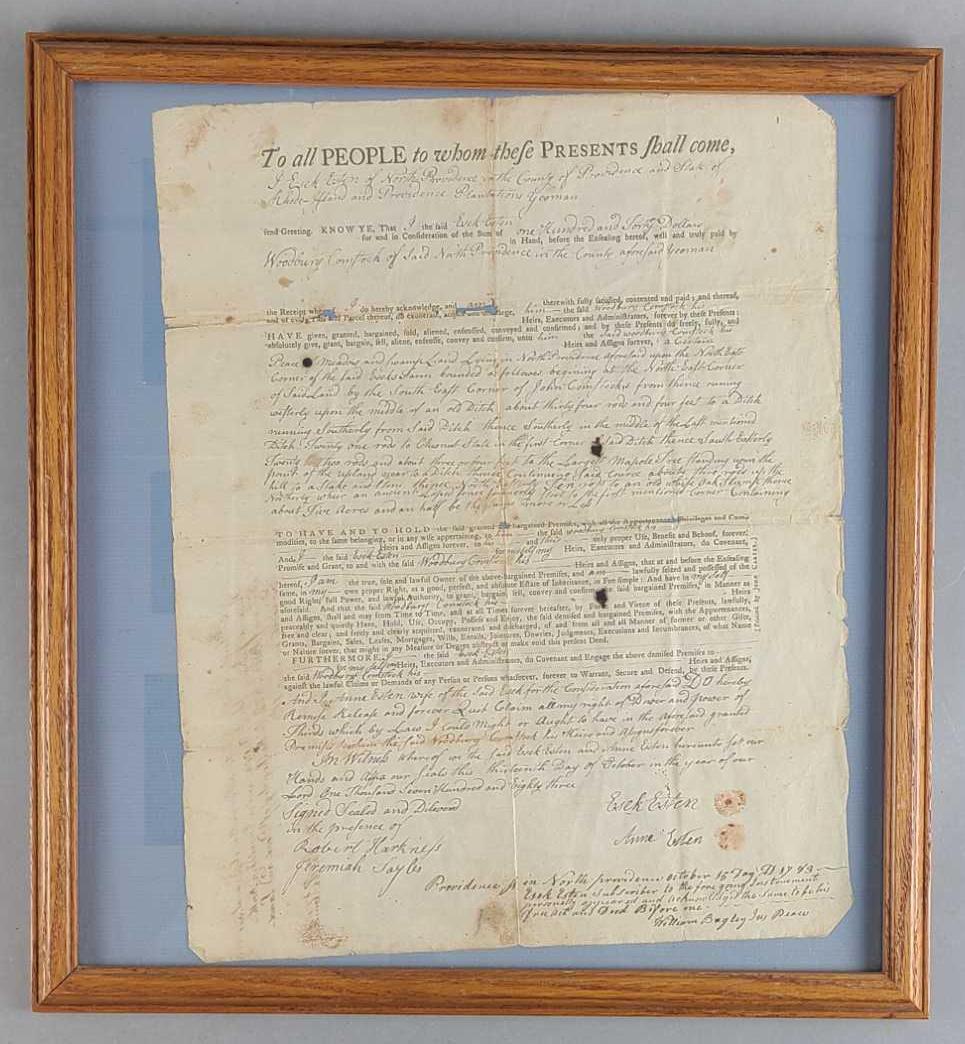 To all PEOPLE to whom theſe PRESENTS ſhall come,
I Esek Esten of North Providence in the County of Providence and State of
Rhode Island and Providence Plantations Yeoman
ſend Greeting. KNOW YE, That I the ſaid Esek Esten
for and in Conſideration of the Sum of one Hundred and Forty Dollars
in Hand, before the Enſealing hereof, well and truly paid by
Woodbury Comſtock of Said North Providence in the County aforeſaid Yeoman
the Receipt I do hereby acknowledge, and therewith fully ſatisfied, contented and paid; and thereof,
and of every Part and Parcel thereof, do exonerate, him the ſaid Woodbury Comſtock his
Heirs, Executors and Adminiſtrators, forever by theſe Preſents:
HAVE given, granted, bargained, ſold, aliened, enfeoffed, conveyed and confirmed; and by theſe Preſents do freely, fully, and
abſolutely give, grant, bargain, ſell, aliene, enfeoffe, convey and confirm, unto him the ſaid Woodbury Comſtock his
Heirs and Aſſigns forever, a Certain
Peace Meadow and swamp Land Lying in North Providence aforeſaid upon the North East
Corner of the ſaid Eseks Farm bounded as follows begining at the North East Corner
of Said Land by the South East Corner of John Comſtocks from thence runing
weſterly upon the middle of an old Ditch about thirty four rods and four feet to a Ditch
running Southerly from Said Ditch thence Southerly in the middle of the Laſt mentioned
Ditch Twenty one rods to Chesnut Stake in the first Corner Said Ditch thence South Easterly
Twenty two rods and about three or four feet to the Large Mapole Tree standing upon the
point of the upland near to a Ditch thence Continuing Said Course about two rods up the
hill to a Stake and thence North Easterly Ten rods to an old white Oak Stump thence
Northerly wheir an ancient formerly to the first mentioned Corner Containing
about Five Acres and an half be the same more or Less
TO HAVE AND TO HOLD the ſaid granted bargained Premiſes, with all the Appurtenances, Privileges and Com-
modities, to the ſame belonging, or in any wiſe appertaining, to him the ſaid Woodbury Comſtock his
Heirs and Aſſigns forever, to his and their only proper Uſe, Benefit and Behoof, forever.
And, I the ſaid Esek Esten for myſelf my Heirs, Executors and Adminiſtrators, do Covenant,
Promiſe and Grant, to and with the ſaid Woodbury Comſtock his Heirs and Aſſigns, that at and before the Enſealing
hereof, I am the true, ſole and lawful Owner of the above-bargained Premiſes, and am lawfully ſeized and poſſeſſed of the
ſame, in my own proper Right, as a good, perfect, and abſolute Eſtate of Inheritance, in Fee-ſimple: And have in my ſelf
good Right, full Power, and lawful Authority, to grant, bargain, ſell, convey and confirm ſaid bargained Premiſes, in Manner as
aforeſaid. And that the ſaid Woodbury Comſtock his Heirs
and Aſſigns, ſhall and may from Time to Time, and at all Times forever hereafter, by Force and Virtue of theſe Preſents, lawfully,
peaceably and quietly Have, Hold, Uſe, Occupy, Poſſeſs and Enjoy, the ſaid demiſed and bargained Premiſes, with the Appurtenances,
free and clear; and freely and clearly acquitted, exonerated and diſcharged, of and from all and all Manner of former or other Gifts,
Grants, Bargains, Sales, Leaſes, Mortgages, Wills, Entails, Jointures, Dowries, Judgments, Executions and Incumbrances, of what Name
or Nature ſoever, that might in any Meaſure or Degree obſtruct or make void this preſent Deed.
FURTHERMORE, I the ſaid Esek Esten
for my ſelf my Heirs, Executors and Adminiſtrators, do Covenant and Engage the above demiſed Premiſes to
the ſaid Woodbury Comſtock his Heirs and Aſſigns,
againſt the lawful Claims or Demands of any Perſon or Perſons whatſoever, forever to Warrant, Secure and Defend, by theſe Preſents.
And I Anne Esten wife of the Said Esek for the Conſideration aforeſaid DO hereby
Remise Release and forever Quit Claim all my right of Dower and power of
Thirds which by Law I Could Might or Aught to have in the aforeſaid granted
Premiſes to him the ſaid Woodbury Comſtock his Heirs and Aſsigns forever
In Witneſs whereof we the ſaid Esek Esten and Anne Esten hereunto ſet our
Hands and Affix our Seals this thirteenth Day of October in the year of our
Lord One Thousand Seven Hundred and Eighty three
Signed Sealed and Dilevered
in the presence of
Robert Harkneſs
Jeremiah Sayles
Esek Esten
Anne Esten
Providence in North providence October 15 Day AD 1783
Esek Esten Subscriber to the fore going Instrument
personally appeared and acknowledged the same to be his
free act and Deed Before me
William Bagley Jus Peace